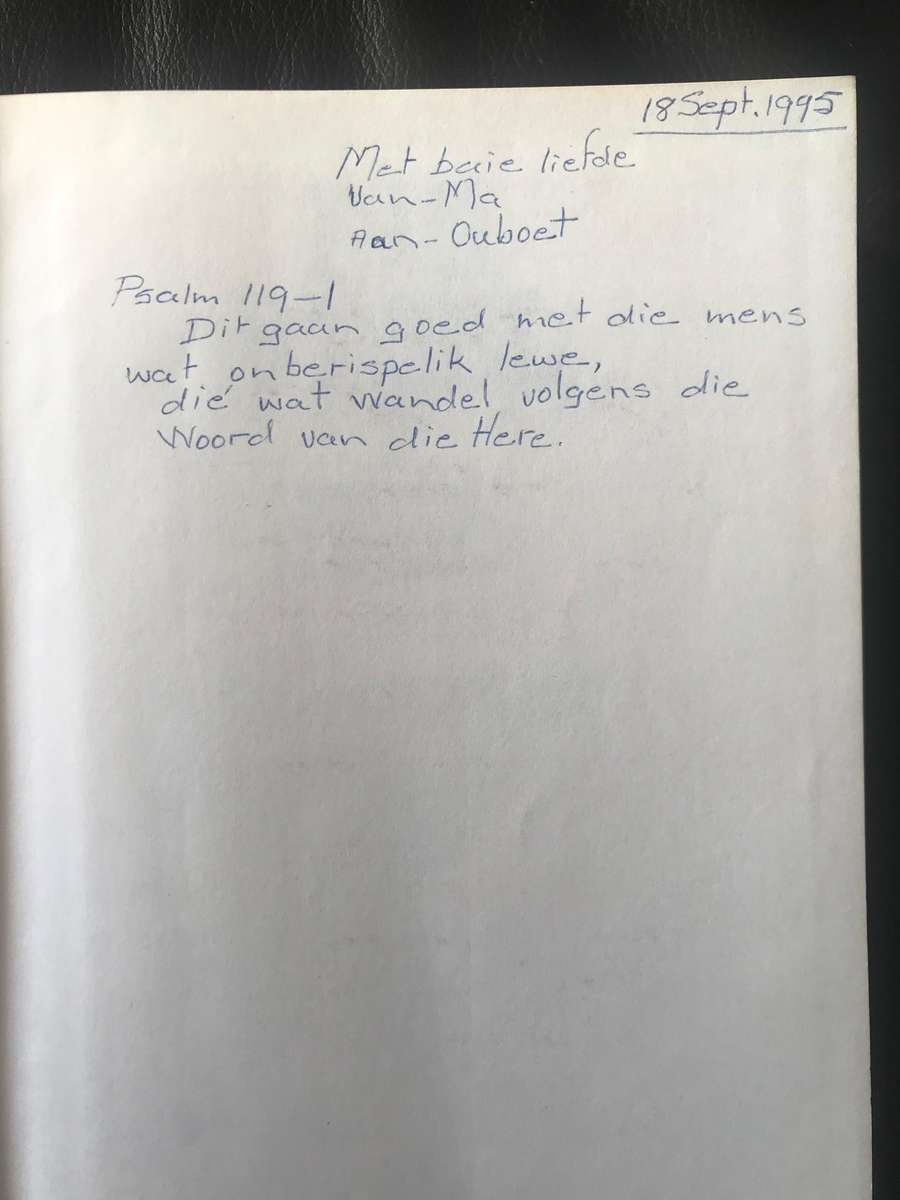 18 Sept. 1995
Met baie liefde
Van - Ma
Aan - Ouboet
Psalm 119-1
Dit gaan goed met die mens
wat onberispelik lewe,
dié wat wandel volgens die
Woord van die Here.